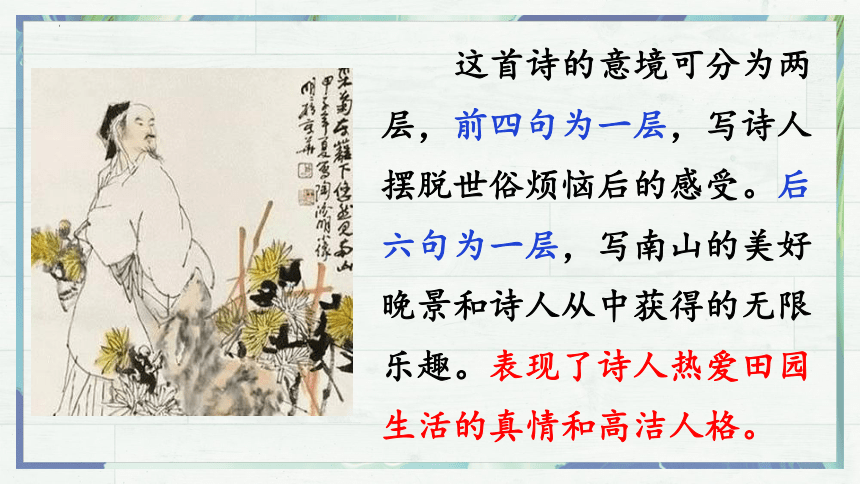 这首诗的意境可分为两
层，前四句为一层，写诗人
摆脱世俗烦恼后的感受。后
六句为一层，写南山的美好
晚景和诗人从中获得的无限
乐趣。表现了诗人热爱田园
生活的真情和高洁人格。
采菊东篱下悠然见南山
甲子年夏写陶渊明像